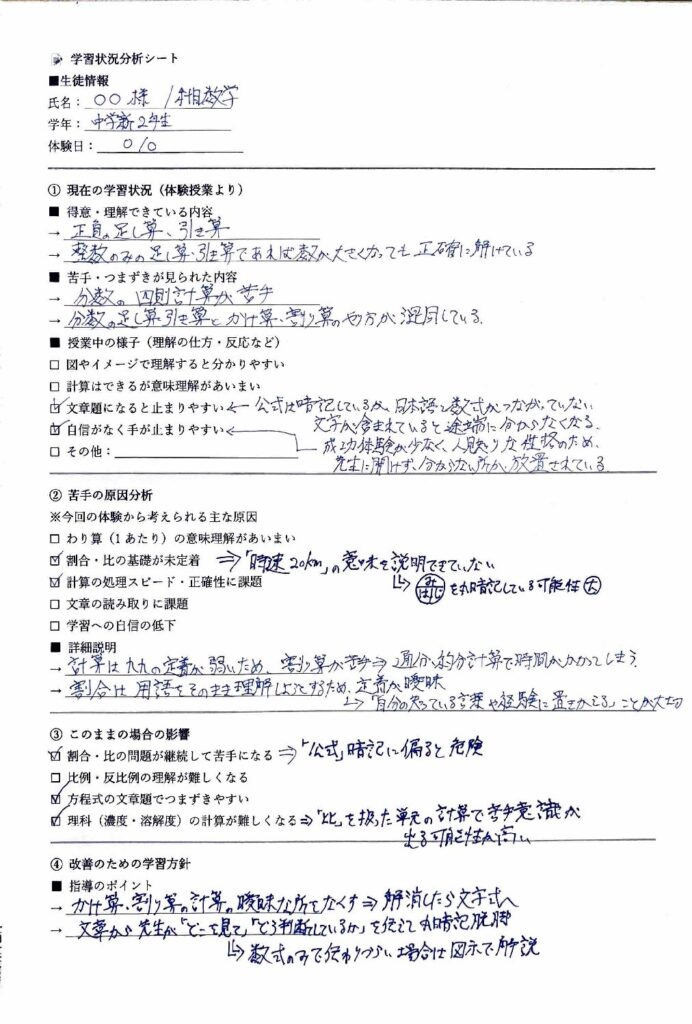 学習状況分析シート
■生徒情報
氏名：〇〇様 / 相数学
学年：中学新2年生
体験日：〇/〇
① 現在の学習状況（体験授業より）
■ 得意・理解できている内容
→ 正負の足し算、引き算
→ 整数のみの足し算・引き算であれば数が大きくなっても正確に解けている
■ 苦手・つまずきが見られた内容
→ 分数の四則計算が苦手
→ 分数の足し算・引き算とかけ算・割り算のやり方が混同している.
■ 授業中の様子（理解の仕方・反応など）
□ 図やイメージで理解すると分かりやすい
□ 計算はできるが意味理解があいまい
☑ 文章題になると止まりやすい ← 公式は暗記しているが、日本語と数式がつながっていない
文字が含まれていると途端に分からなくなる.
☑ 自信がなく手が止まりやすい ← 成功体験が少なく、人見知りな性格のため、
□ その他：
先生に聞けず、分からない所が放置されている
② 苦手の原因分析
※今回の体験から考えられる主な原因
□ わり算（1あたり）の意味理解があいまい
☑ 割合・比の基礎が未定着 ⇒「時速20km」の意味を説明できていない
☑ 計算の処理スピード・正確性に課題 ↳ みはじを丸暗記している可能性大
□ 文章の読み取りに課題
□ 学習への自信の低下
■ 詳細説明
→ 計算は九九の定着が弱いため、割り算が苦手⇒通分・約分計算で時間がかかってしまう.
→ 割合は用語をそのまま理解しようとするため、定着が曖昧
↳「自分の知っている言葉や経験に置きかえる」ことが大切
③ このままの場合の影響
☑ 割合・比の問題が継続して苦手になる ⇒「公式」暗記に偏ると危険
□ 比例・反比例の理解が難しくなる
☑ 方程式の文章題でつまずきやすい
☑ 理科（濃度・溶解度）の計算が難しくなる ⇒「比」を扱った単元の計算で苦手意識が
出る可能性が高い
④ 改善のための学習方針
■ 指導のポイント
→ かけ算・割り算の計算の曖昧な所をなくす⇒解消したら文字式へ
→ 文章から先生が「どこを見て」「どう判断しているか」を伝えて丸暗記脱却
↳数式のみで伝わりづらい場合は図示で解説